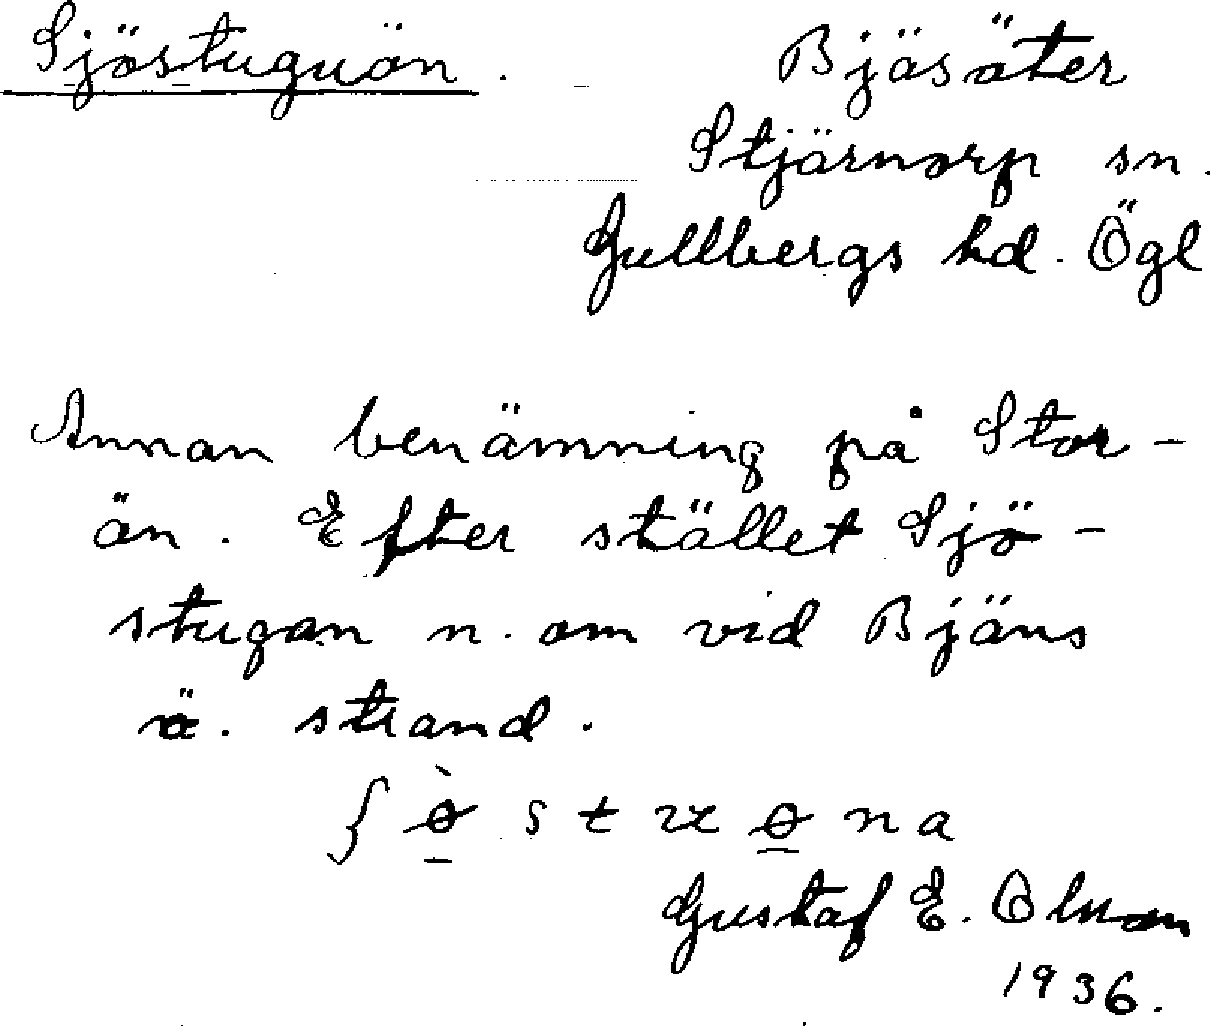 Sjöstuguän. Bjäsäter
Stjärnorp sn.
Gullbergs hd. Ögl
Annan benämning på Stor-
än. Efter stället Sjö-
stugan n. om vid Bjäns
ö. strand.
Gustaf E. Olson
1936.